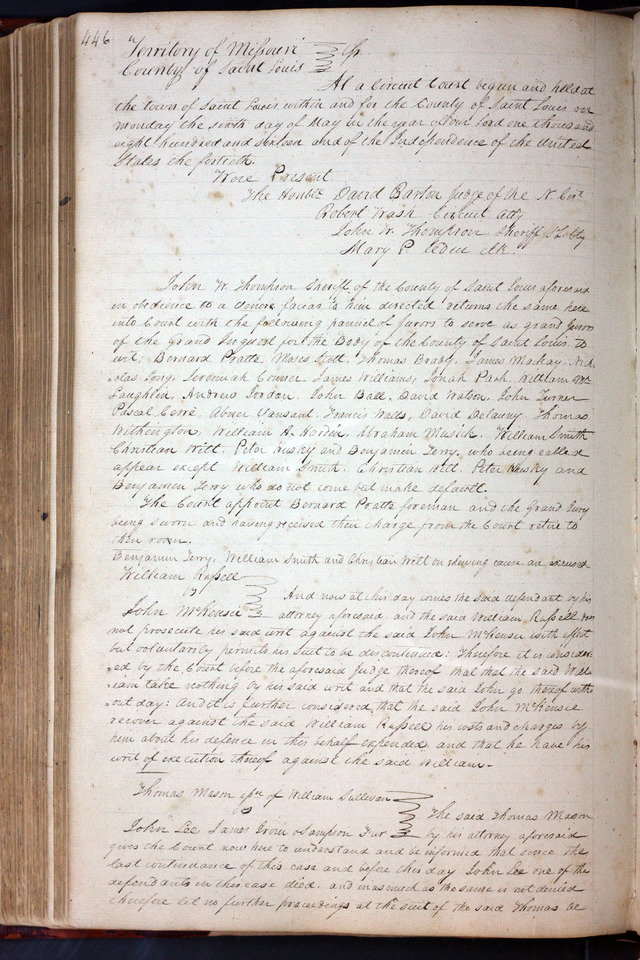 446
Territory of Missouri
County of Saint Louis
At a Circuit Court begun and held at
the town of Saint Louis within and for the County of Saint Louis on
monday the sixth day of May in the year of our lord one thousand
eight hundred and sixteen and of the Independence of the United
States the fortieth.
Were Present
The Honble David Barton Judge of the N. Cir.t
Robert Wash Circuit atty
John W. Thompson Sheriff
Mary P. Leduc clk.
John W. Thompson Sheriff of the County of Saint Louis aforesaid
in obedience to a venire facias to him directed returns the same here
into Court with the following pannel of Jurors to serve as grand Jurors
of the grand Inquest for the Body of the County of Saint Louis to
wit, Bernard Pratte, Moses Scott, Thomas Brady, James Mackay, Nich
olas Long, Jeremiah Conner, James Williams, Jonah Park, William Mc
Laughlin, Andrew Jordon, John Ball, David Watson, John Turner
Pascal Cerré, Abner Vansant, Francis Watts, David Delauny, Thomas
Withington, William H. Hardin, Abraham Musick, William Smith
Christian Witt, Peter Husky and Benjamin Terry, who being called
appear except William Smith, Christian Witt, Peter Husky and
Benjamin Terry who do not come but make default.
The Court appoint Bernard Pratte foreman and the Grand Jury
being sworn and having received their charge from the Court retire to
their room.
Benjamin Terry, William Smith and Christian Witt on shewing cause are excused
William Russell
vs
And now at this day comes the said defendant by his
John McKensie attorney aforesaid and the said William Russell does
not prosecute his said writ against the said John McKensie with effect
but voluntarily permits his suit to be discontinued. Therefore it is consider
ed by the Court before the aforesaid Judge thereof that that the said Will
iam take nothing by his said writ and that the said John go thereof with
out day: And it is further considered that the said John McKensie
recover against the said William Russell his costs and charges by
him about his defence in this behalf expended, and that he have his
writ of execution thereof against the said William.
Thomas Mason of William Sullivan
vs
The said Thomas Mason
John Lee, James Irvin & Sampson by his attorney aforesaid
gives the Court now here to understand and be informed that since the
last continuance of this case and before this day John Lee one of the
defendants in this case died, and inasmuch as the same is not denied
therefore let no further proceedings at the suit of the said Thomas be